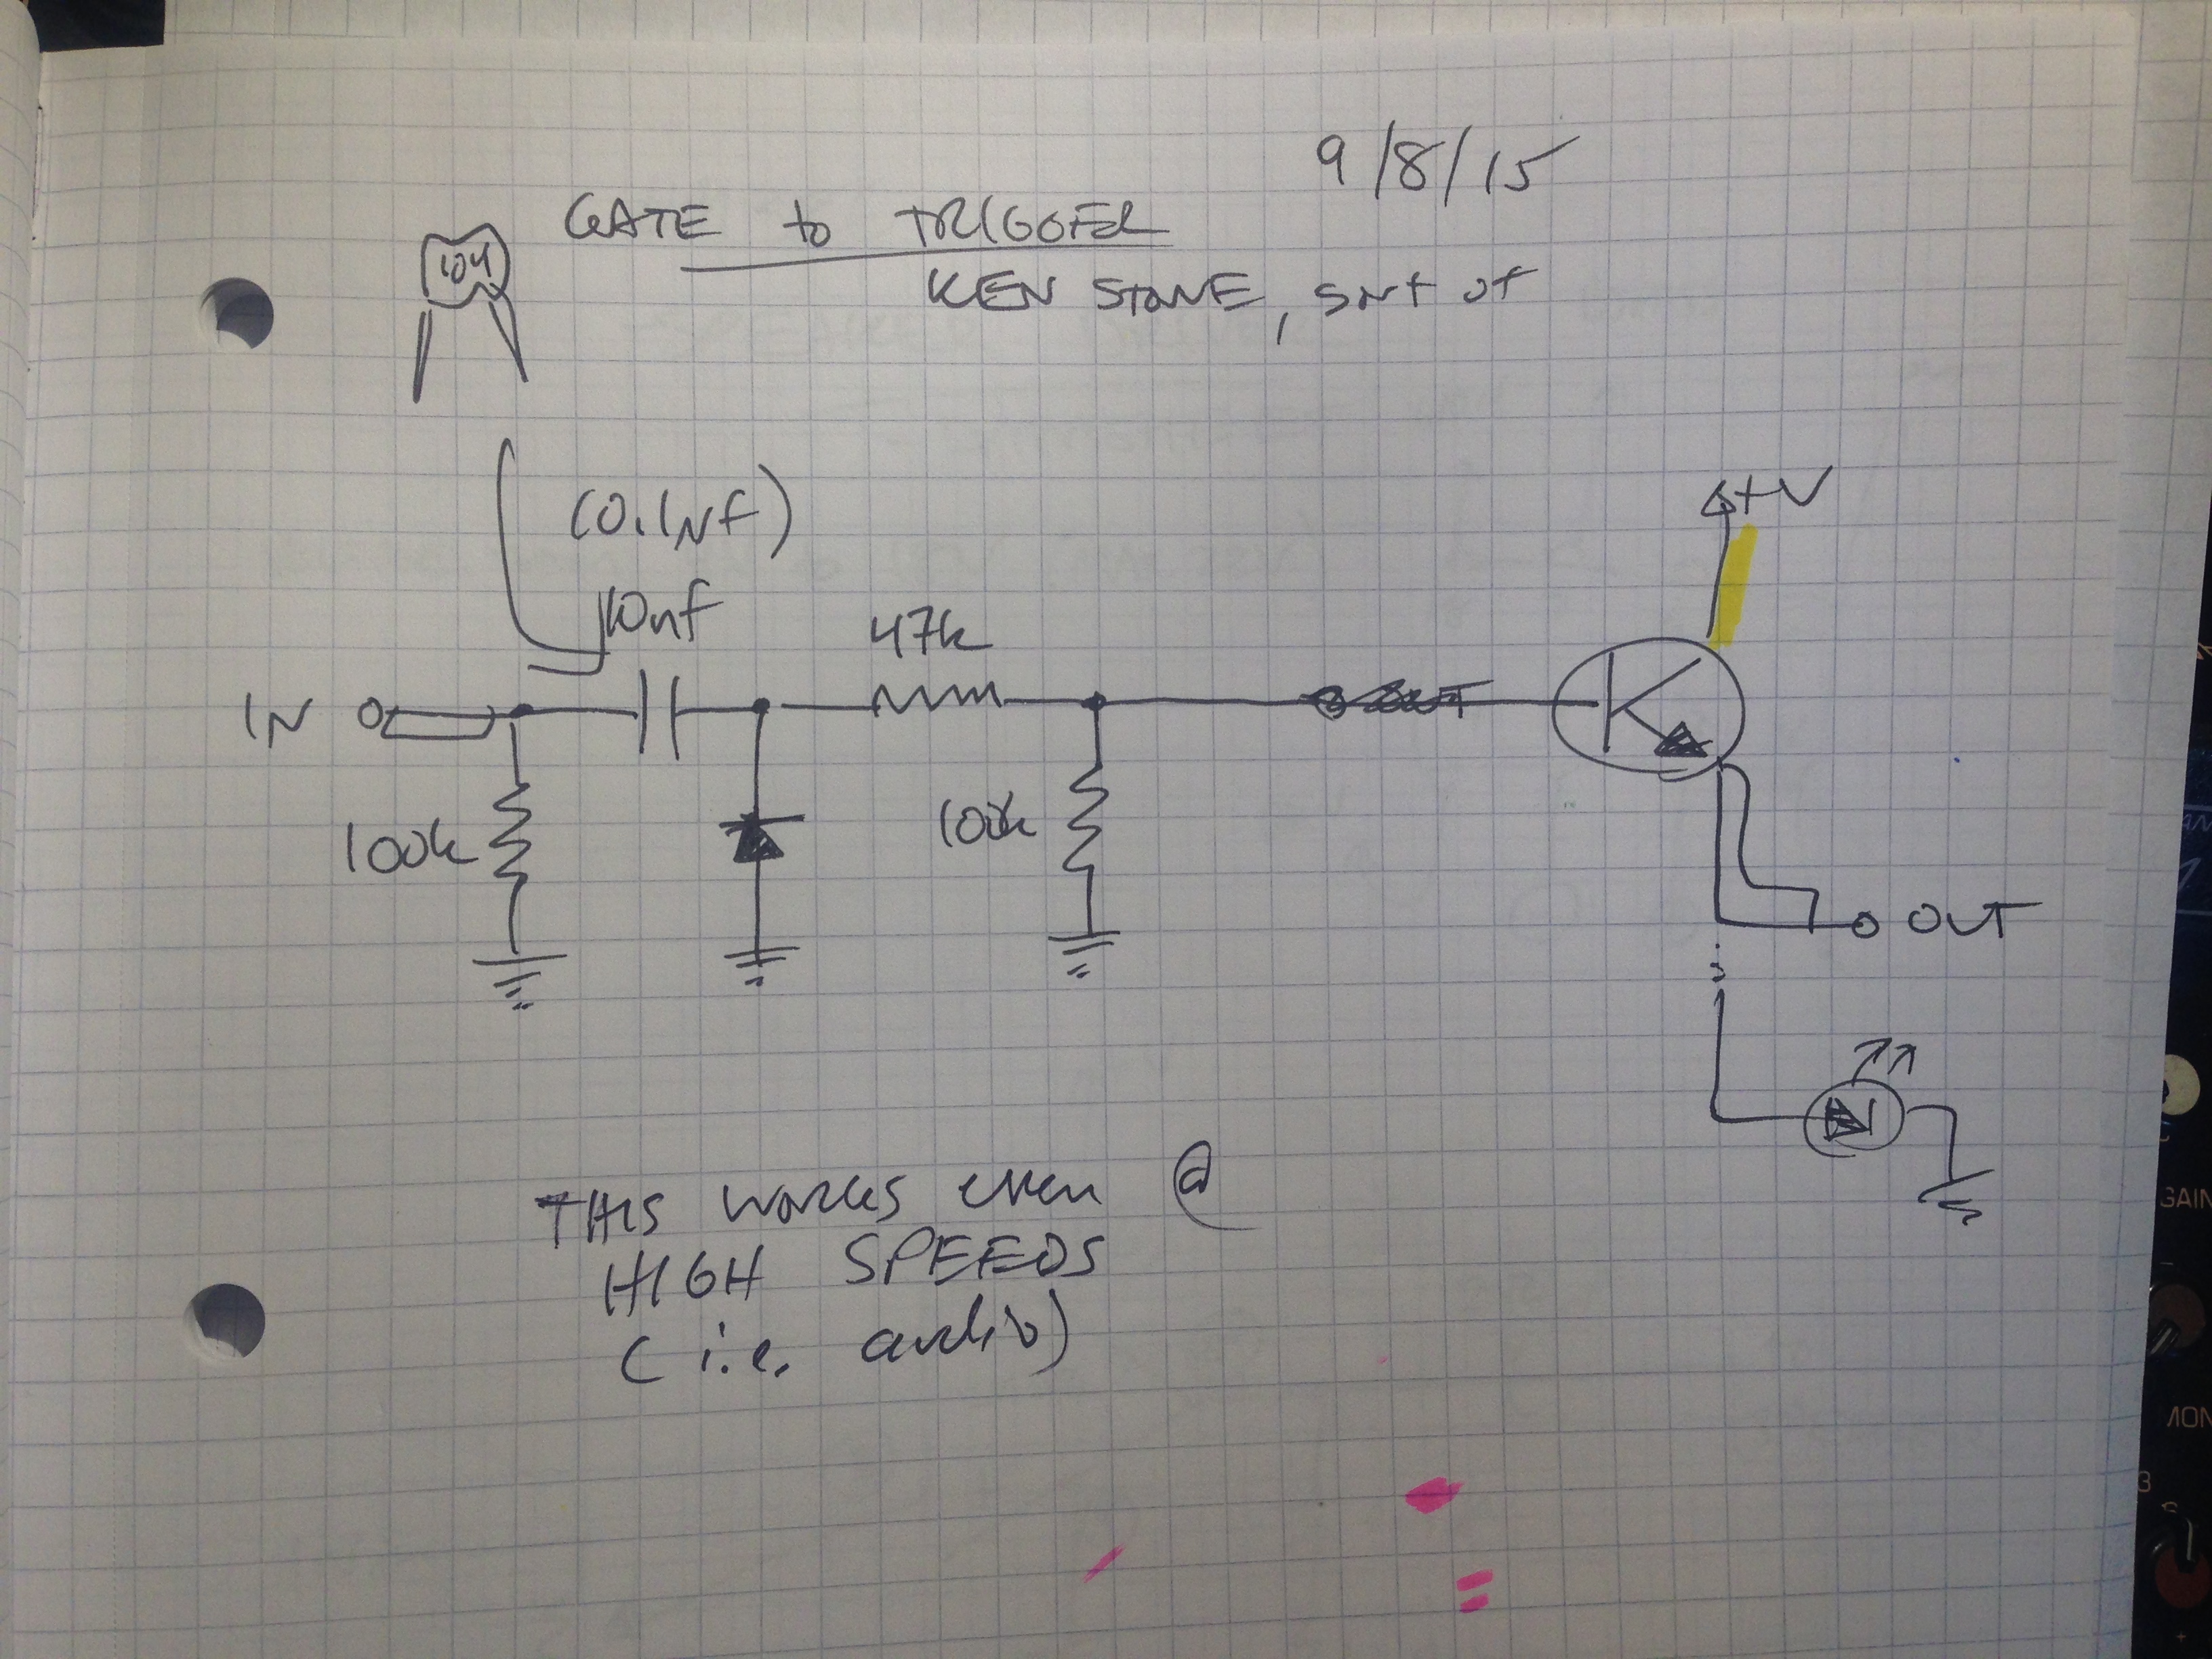 9/8/15
GATE to TRIGGER
KEN STONE, sort of
104
(0.1NF)
10nf
47k
+V
IN
OUT
100k
100k
OUT
THIS WORKS even @
HIGH SPEEDS
(i.e. audio)
GAIN
MON
3